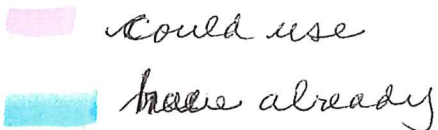 could use
have already